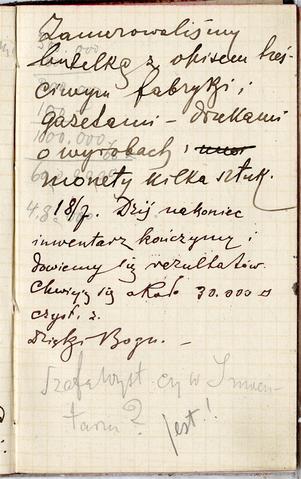 Zamurowaliśmy
butelkę z opisem treś-
ciwym fabryki i
gazetami – drukami
o wyrobach i
monety kilka sztuk.
18/7. Dziś nakoniec
inwentarz kończymy i
dowiemy się rezultatów.
się około 30.000
czyst. z.
Dzięki Bogu. –
Szafa wyst. czy w Inwen-
tarzu? jest!
100.000
1000.000
4.8